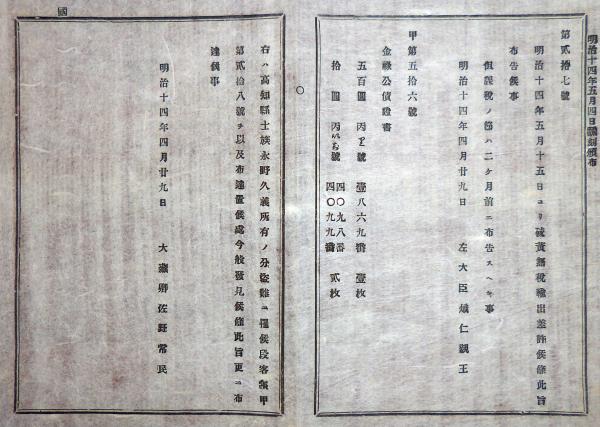 明治十四年五月四日飜刻頒布
第貳拾七號
明治十四年五月十五日ヨリ硫黄無税輸出差許候條此旨
布告候事
但課税ノ節ハ二ケ月前ニ布告スヘキ事
明治十四年四月廿九日 左大臣熾仁親王
甲第五十六號
金祿公債證書
五百圓 丙 號 壹八六九番 壹枚
拾圓 丙 號 四〇九八番 四〇九九番 貳枚
右ハ高知縣士族永野久義所有ノ分盜難ニ罹候段客年甲
第貳拾八號ヲ以及布達置候處今般發見候條此旨更ニ布
達候事
明治十四年四月廿九日 大藏卿佐野常民
國